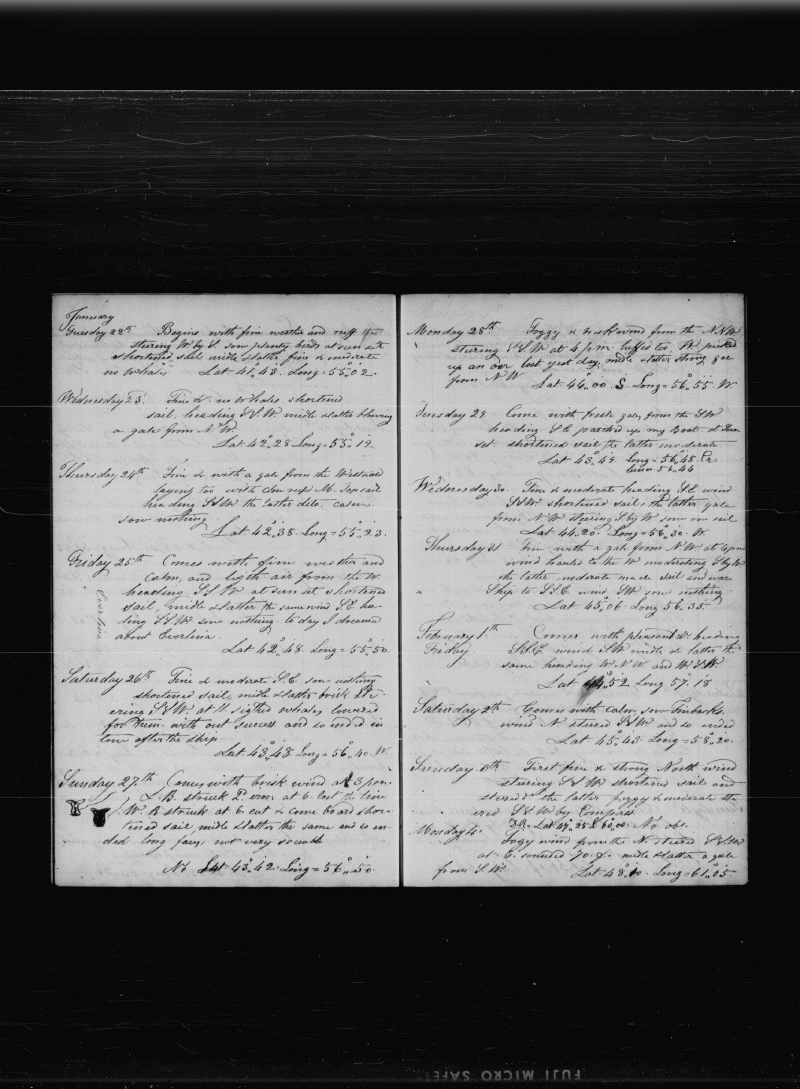 January
Tuesday 22d Begins with fine weather and ruff sea
steering W by S. saw plenty birds at sun set
shortened sail midle & latter fine & moderate
no whales Lat 41,43. Long = 55°02
Wednesday 23. Fine & no whales shortened
sail. heading S.S.W. midle & latter blowing
a gale from N.W.
Lat 42°28 Long = 55°19.
Thursday 24th Fine & with a gale from the Westward
laying too with close reef M. Topsail
heading S.S.W. the latter deto. calm.
saw nothing
Lat 42°38. Long = 55°23.
Friday 25th Comes with fine weather and
calm, and ligth air from the W.
heading S.S.W at sun set shortened
sail, midle & latter the same wind S.E. hea-
ding S.S.W. saw nothing to day I dreamed
about Everlina.
Everlina
Lat 42°48. Long = 55°50.
Saturday 26th Fine & moderate S.E. saw nothing
shortened sail, midle & latter brisk ste-
ering S.S.W at 11 sighted whales lowered
for them. with out success and so ended in
tow after the ship
Lat 43°43 Long = 56°40. W
Sunday 27.th Comes with brisk wind at 3 p.m.
L.B. struck 2. iron at 6. lost the line
W.B. struck at 6 cut & came board shor-
tened sail midle & latter the same and so en-
ded long faces, not very sociable
No Lat 43°42. Long = 56°50.
Monday 28th Foggy & wind from the N.N.W
steering S.S.W. at 4 p.m. luffed too W. picked
up an oar lost yest day, midle & latter strong gale
from N.W. Lat 44°00. S. Long = 56°55. W
Tuesday 29 Come with fresh gale, from the S.W
heading S.E. patched up my Boat. at Sun
set. shortened sail the latter moderate
Lat 43°49. Long = 56°48. Cr.
56°44
Wednesday 30. Fine & moderate heading S.E. wind
S.S.W. shortened sail; the latter gale
from N.W. steering S by W saw one sail
Lat 44°20. Long = 56°30. W.
Thursday 31 Fine with a gale from N.W. at 4 p.m
wind hauled to the W. moderating S by W
the latter. moderate made sail and ware
Ship to S.S.E. wind S.W saw nothing
Lat 45°06. Long 56°35.
February 1.th Comes with pleasant & heading
Friday S.S.E. wind S.W. midle & latter the
same heading W.N.W and W.S.W.
Lat 44°52 Long 57°18
Saturday 2th Comes with calm, saw Finbacks.
wind N steered S.S.W. and so ended
Lat 45°43. Long = 58°20.
Sunday 3th First fine & strong North wind
steering S.S.W. shortened sail and
steered the latter foggy & moderate ste-
ered S.S.W by Compass
D.R. Lat 47°25 S. 60,00. No ob.
Monday 4. Fogy wind from the N. steered S.S.W
at 6. sounded 70.f. midle & latter a gale
from S.W. Lat 48°10. Long = 61°05.
FUJI MICRO SAFETY